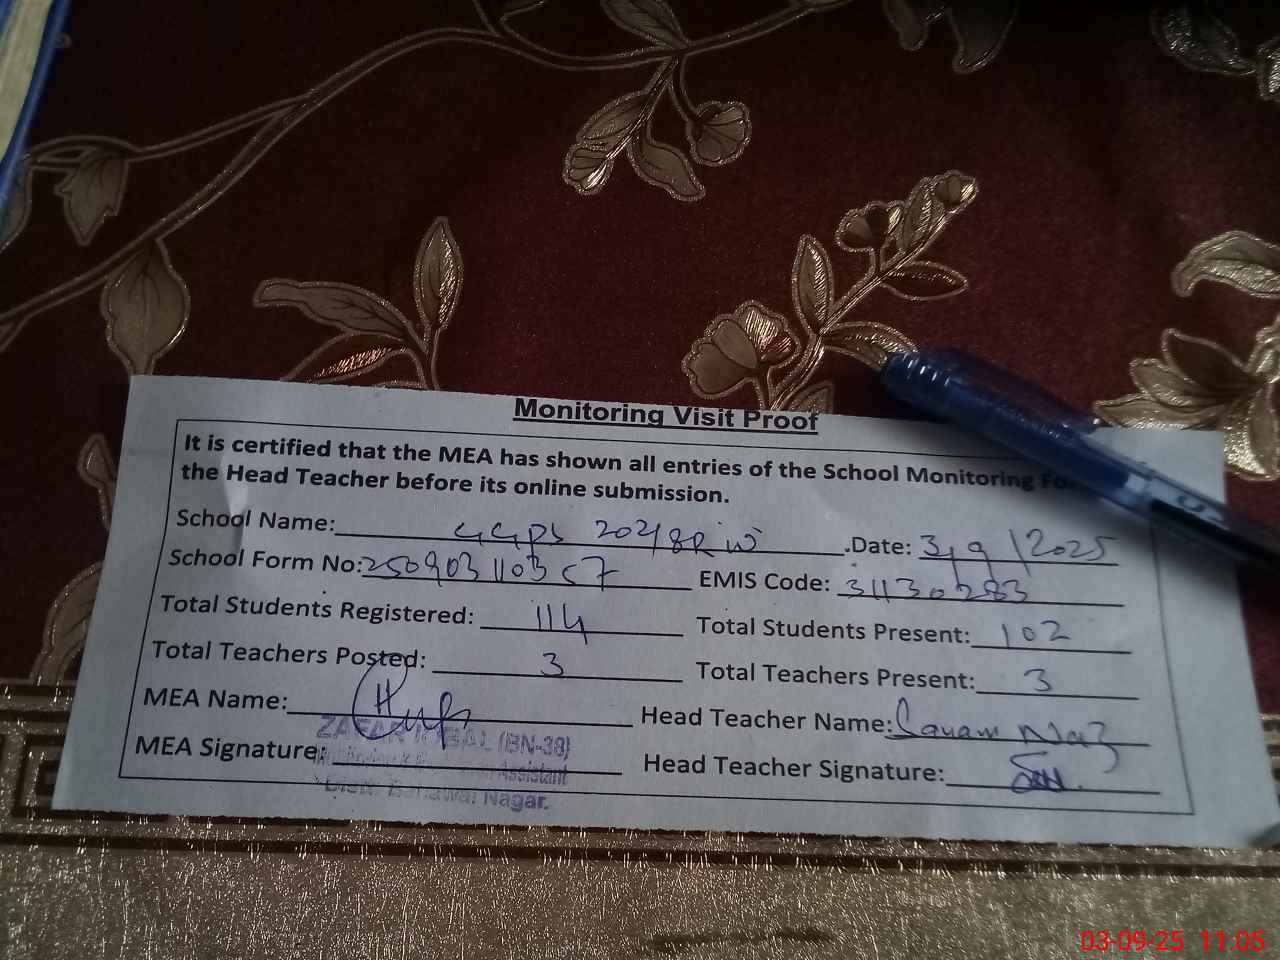 Monitoring Visit Proof
It is certified that the MEA has shown all entries of the School Monitoring
the Head Teacher before its online submission.
School Name: GGPS 202/8R W .Date: 3/9/2025
School Form No: EMIS Code: 31130283
Total Students Registered: 114 Total Students Present: 102
Total Teachers Posted: 3 Total Teachers Present: 3
MEA Name: Head Teacher Name: Naz
ZAFAR IQBAL (BN-38)
MEA Signature: Head Teacher Signature:
Assistant
Distt: Bahawal Nagar.
03-09-25 11:05